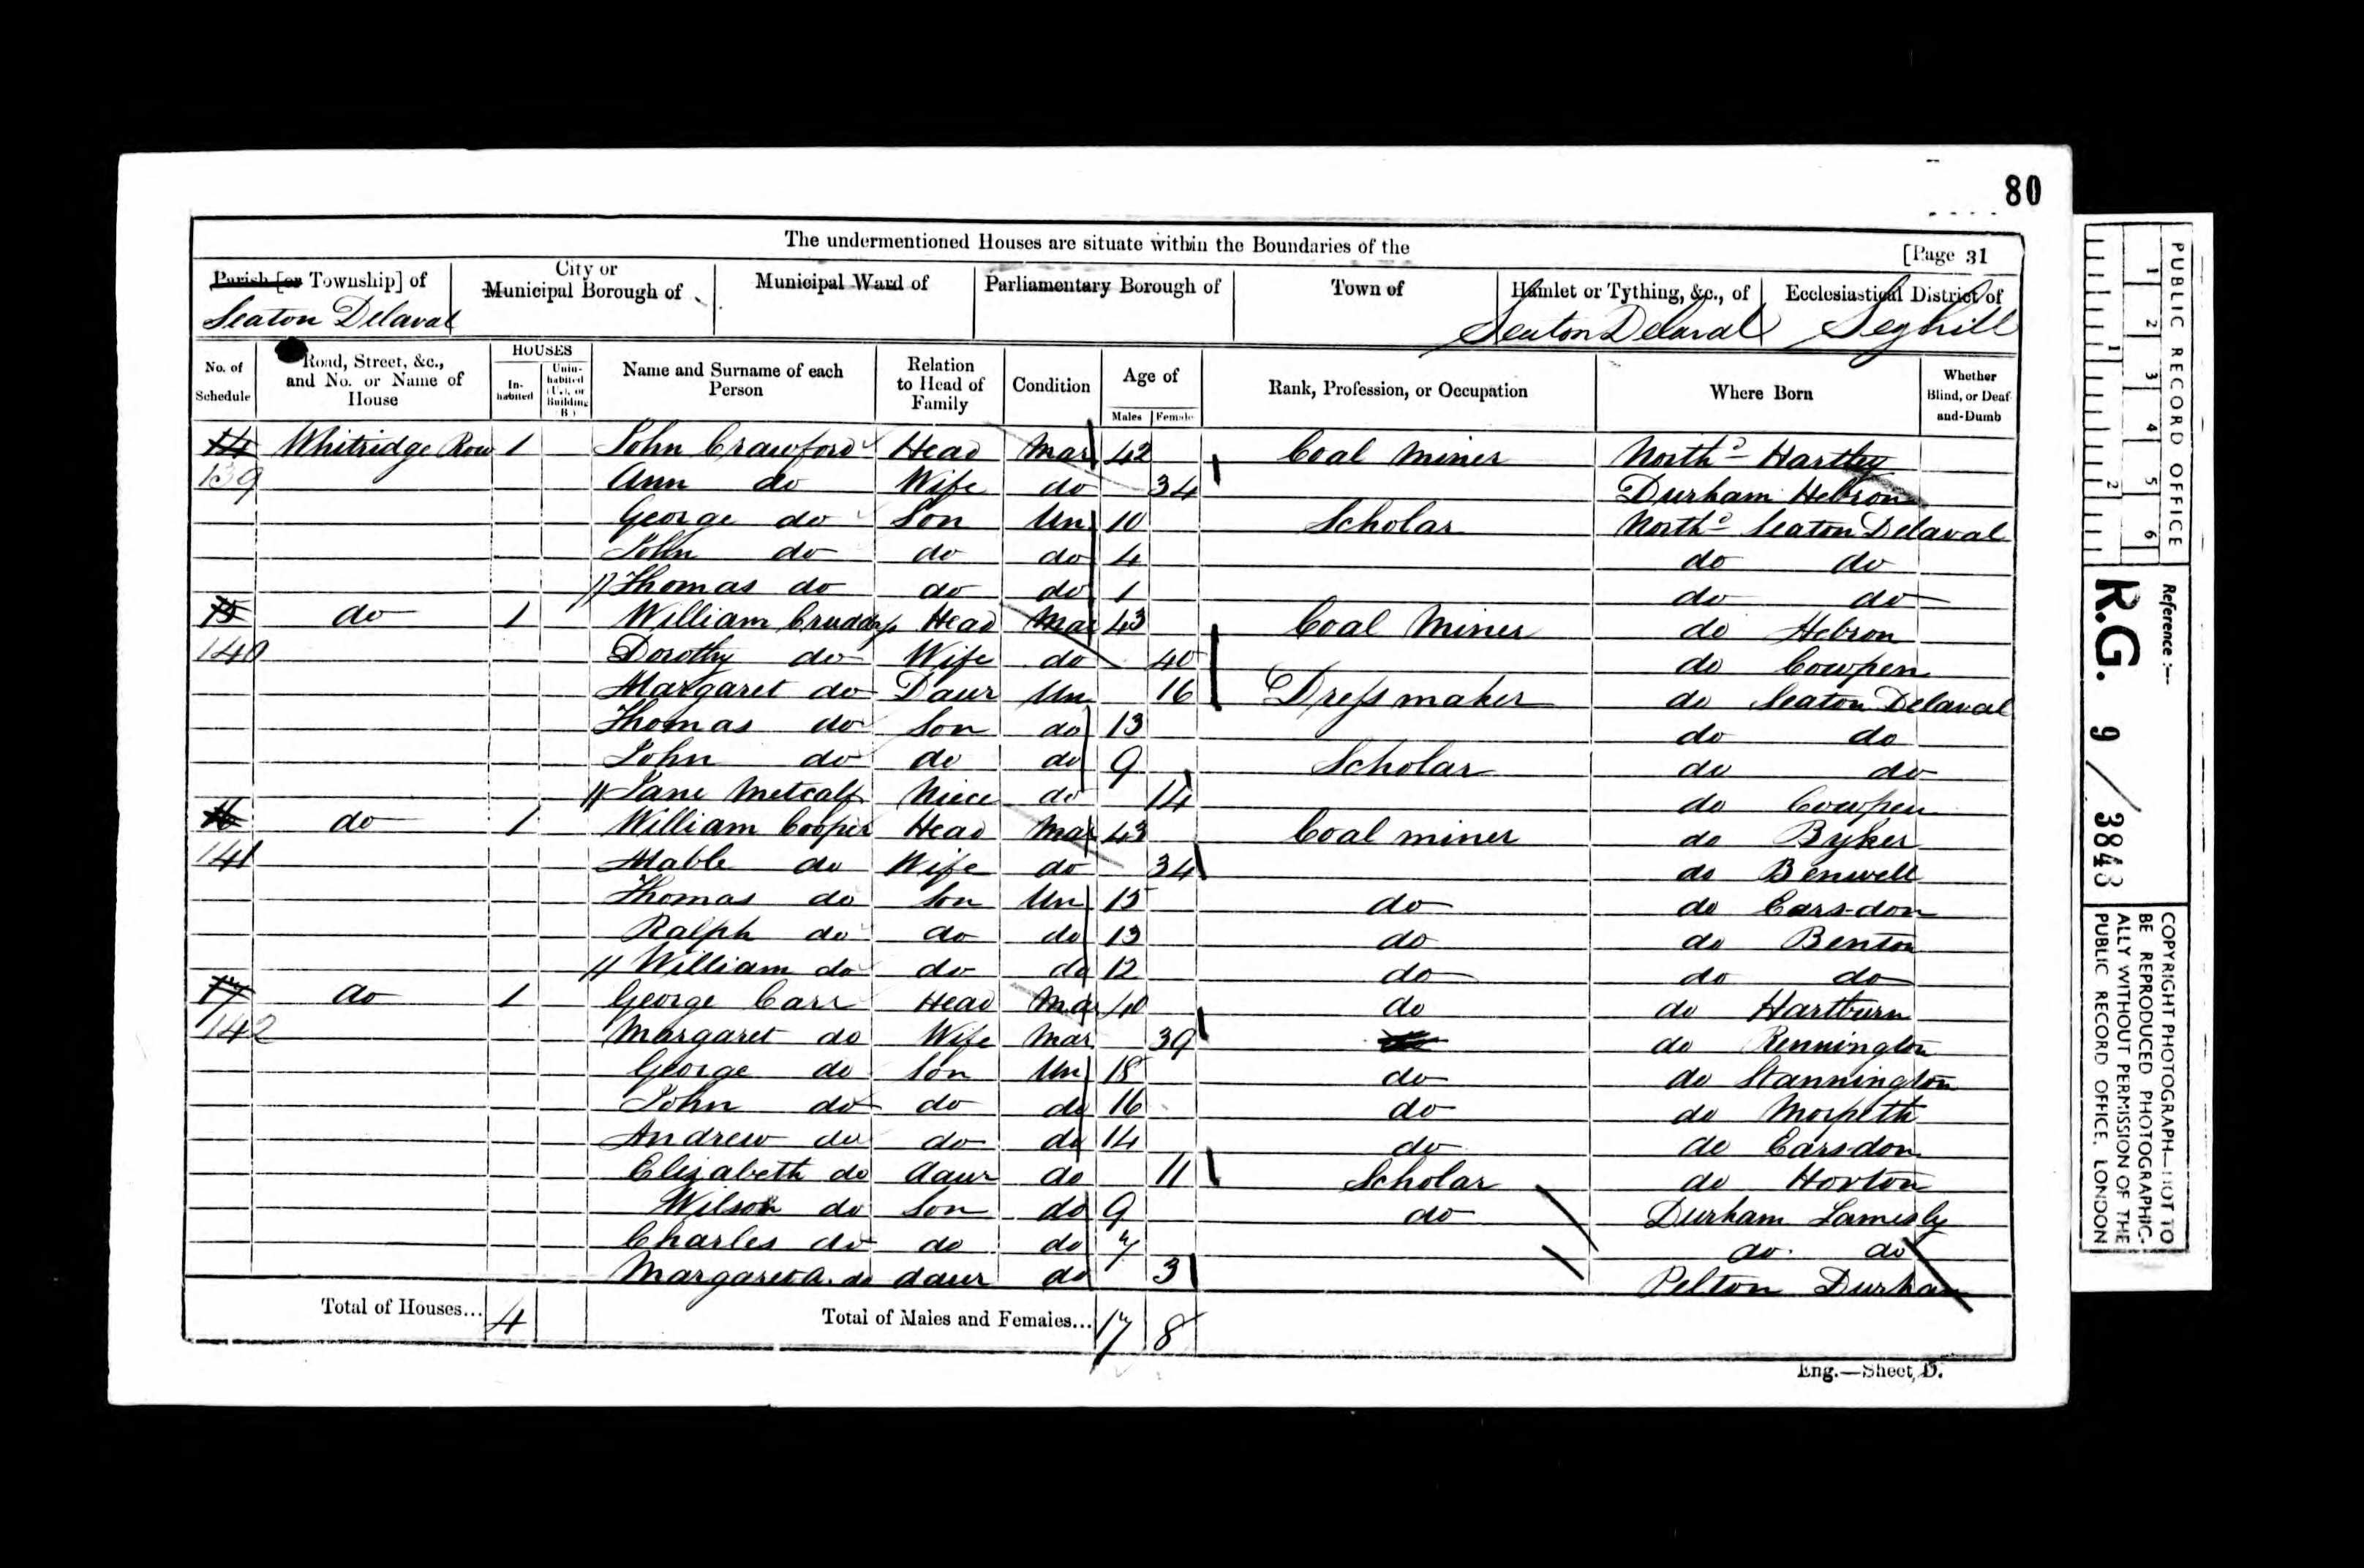 80
The undermentioned Houses are situate within the Boundaries of the [Page 31
Parish [or Township] of Seaton Delaval
City or Municipal Borough of
Municipal Ward of
Parliamentary Borough of
Town of
Hamlet or Tything, &c., of Seaton Delaval
Ecclesiastical District of Seghill
No. of Schedule
Road, Street, &c., and No. or Name of House
HOUSES
Inhabited
Uninhabited (U.), or Building (B.)
Name and Surname of each Person
Relation to Head of Family
Condition
Age of
Males Females
Rank, Profession, or Occupation
Where Born
Whether Blind, or Deaf-and-Dumb
14 Whitridge Row 1 John Crawford Head Mar 42 Coal Miner North'd Hartley
139 Ann do Wife do 34 Durham Hebron
George do Son Un 10 Scholar North'd Seaton Delaval
John do do do 4 do do
Thomas do do do 1 do do
15 do 1 William Cruddass Head Mar 43 Coal Miner do Hebron
140 Dorothy do Wife do 40 do Cowpen
Margaret do Daur Un 16 Dressmaker do Seaton Delaval
Thomas do Son do 13 do do
John do do do 9 Scholar do do
Jane Metcalf Niece do 14 do Cowpen
16 do 1 William Cooper Head Mar 43 Coal miner do Byker
141 Mable do Wife do 34 do Benwell
Thomas do Son Un 15 do do Earsdon
Ralph do do do 13 do do Benton
William do do do 12 do do do
17 do 1 George Carr Head Mar 40 do do Hartburn
142 Margaret do Wife Mar 39 do Rennington
George do Son Un 18 do do Stannington
John do do do 16 do do Morpeth
Andrew do do do 14 do do Earsdon
Elizabeth do daur do 11 Scholar do Horton
Wilson do Son do 9 do Durham Lamesly
Charles do do do 7 do do
Margaret A. do daur do 3 Pelton Durham
Total of Houses... 4 Total of Males and Females... 17 8
Eng.—Sheet D.
PUBLIC RECORD OFFICE
1 2 3 4 5 6
1 2
Reference :—
R.G. 9 / 3843
COPYRIGHT PHOTOGRAPH—NOT TO
BE REPRODUCED PHOTOGRAPHIC-
ALLY WITHOUT PERMISSION OF THE
PUBLIC RECORD OFFICE, LONDON